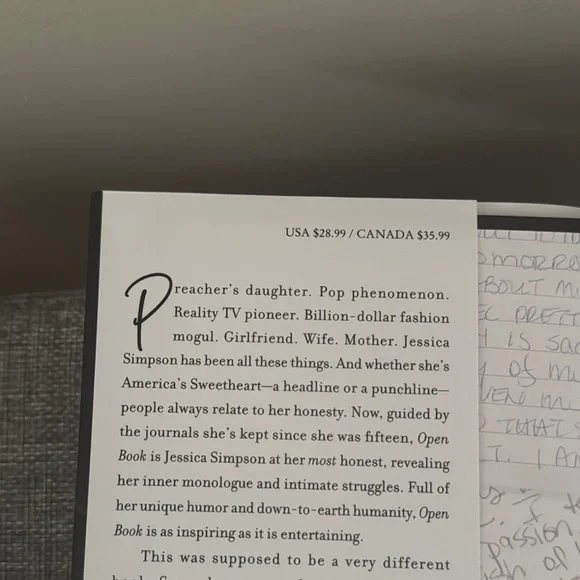 USA $28.99 / CANADA $35.99
Preacher's daughter. Pop phenomenon.
Reality TV pioneer. Billion-dollar fashion
mogul. Girlfriend. Wife. Mother. Jessica
Simpson has been all these things. And whether she's
America's Sweetheart—a headline or a punchline—
people always relate to her honesty. Now, guided by
the journals she's kept since she was fifteen, Open
Book is Jessica Simpson at her most honest, revealing
her inner monologue and intimate struggles. Full of
her unique humor and down-to-earth humanity, Open
Book is as inspiring as it is entertaining.
This was supposed to be a very different
OMORRO
BOUT M
PRETT
IS SA
OF M
THAT
T. I A
passion,
of